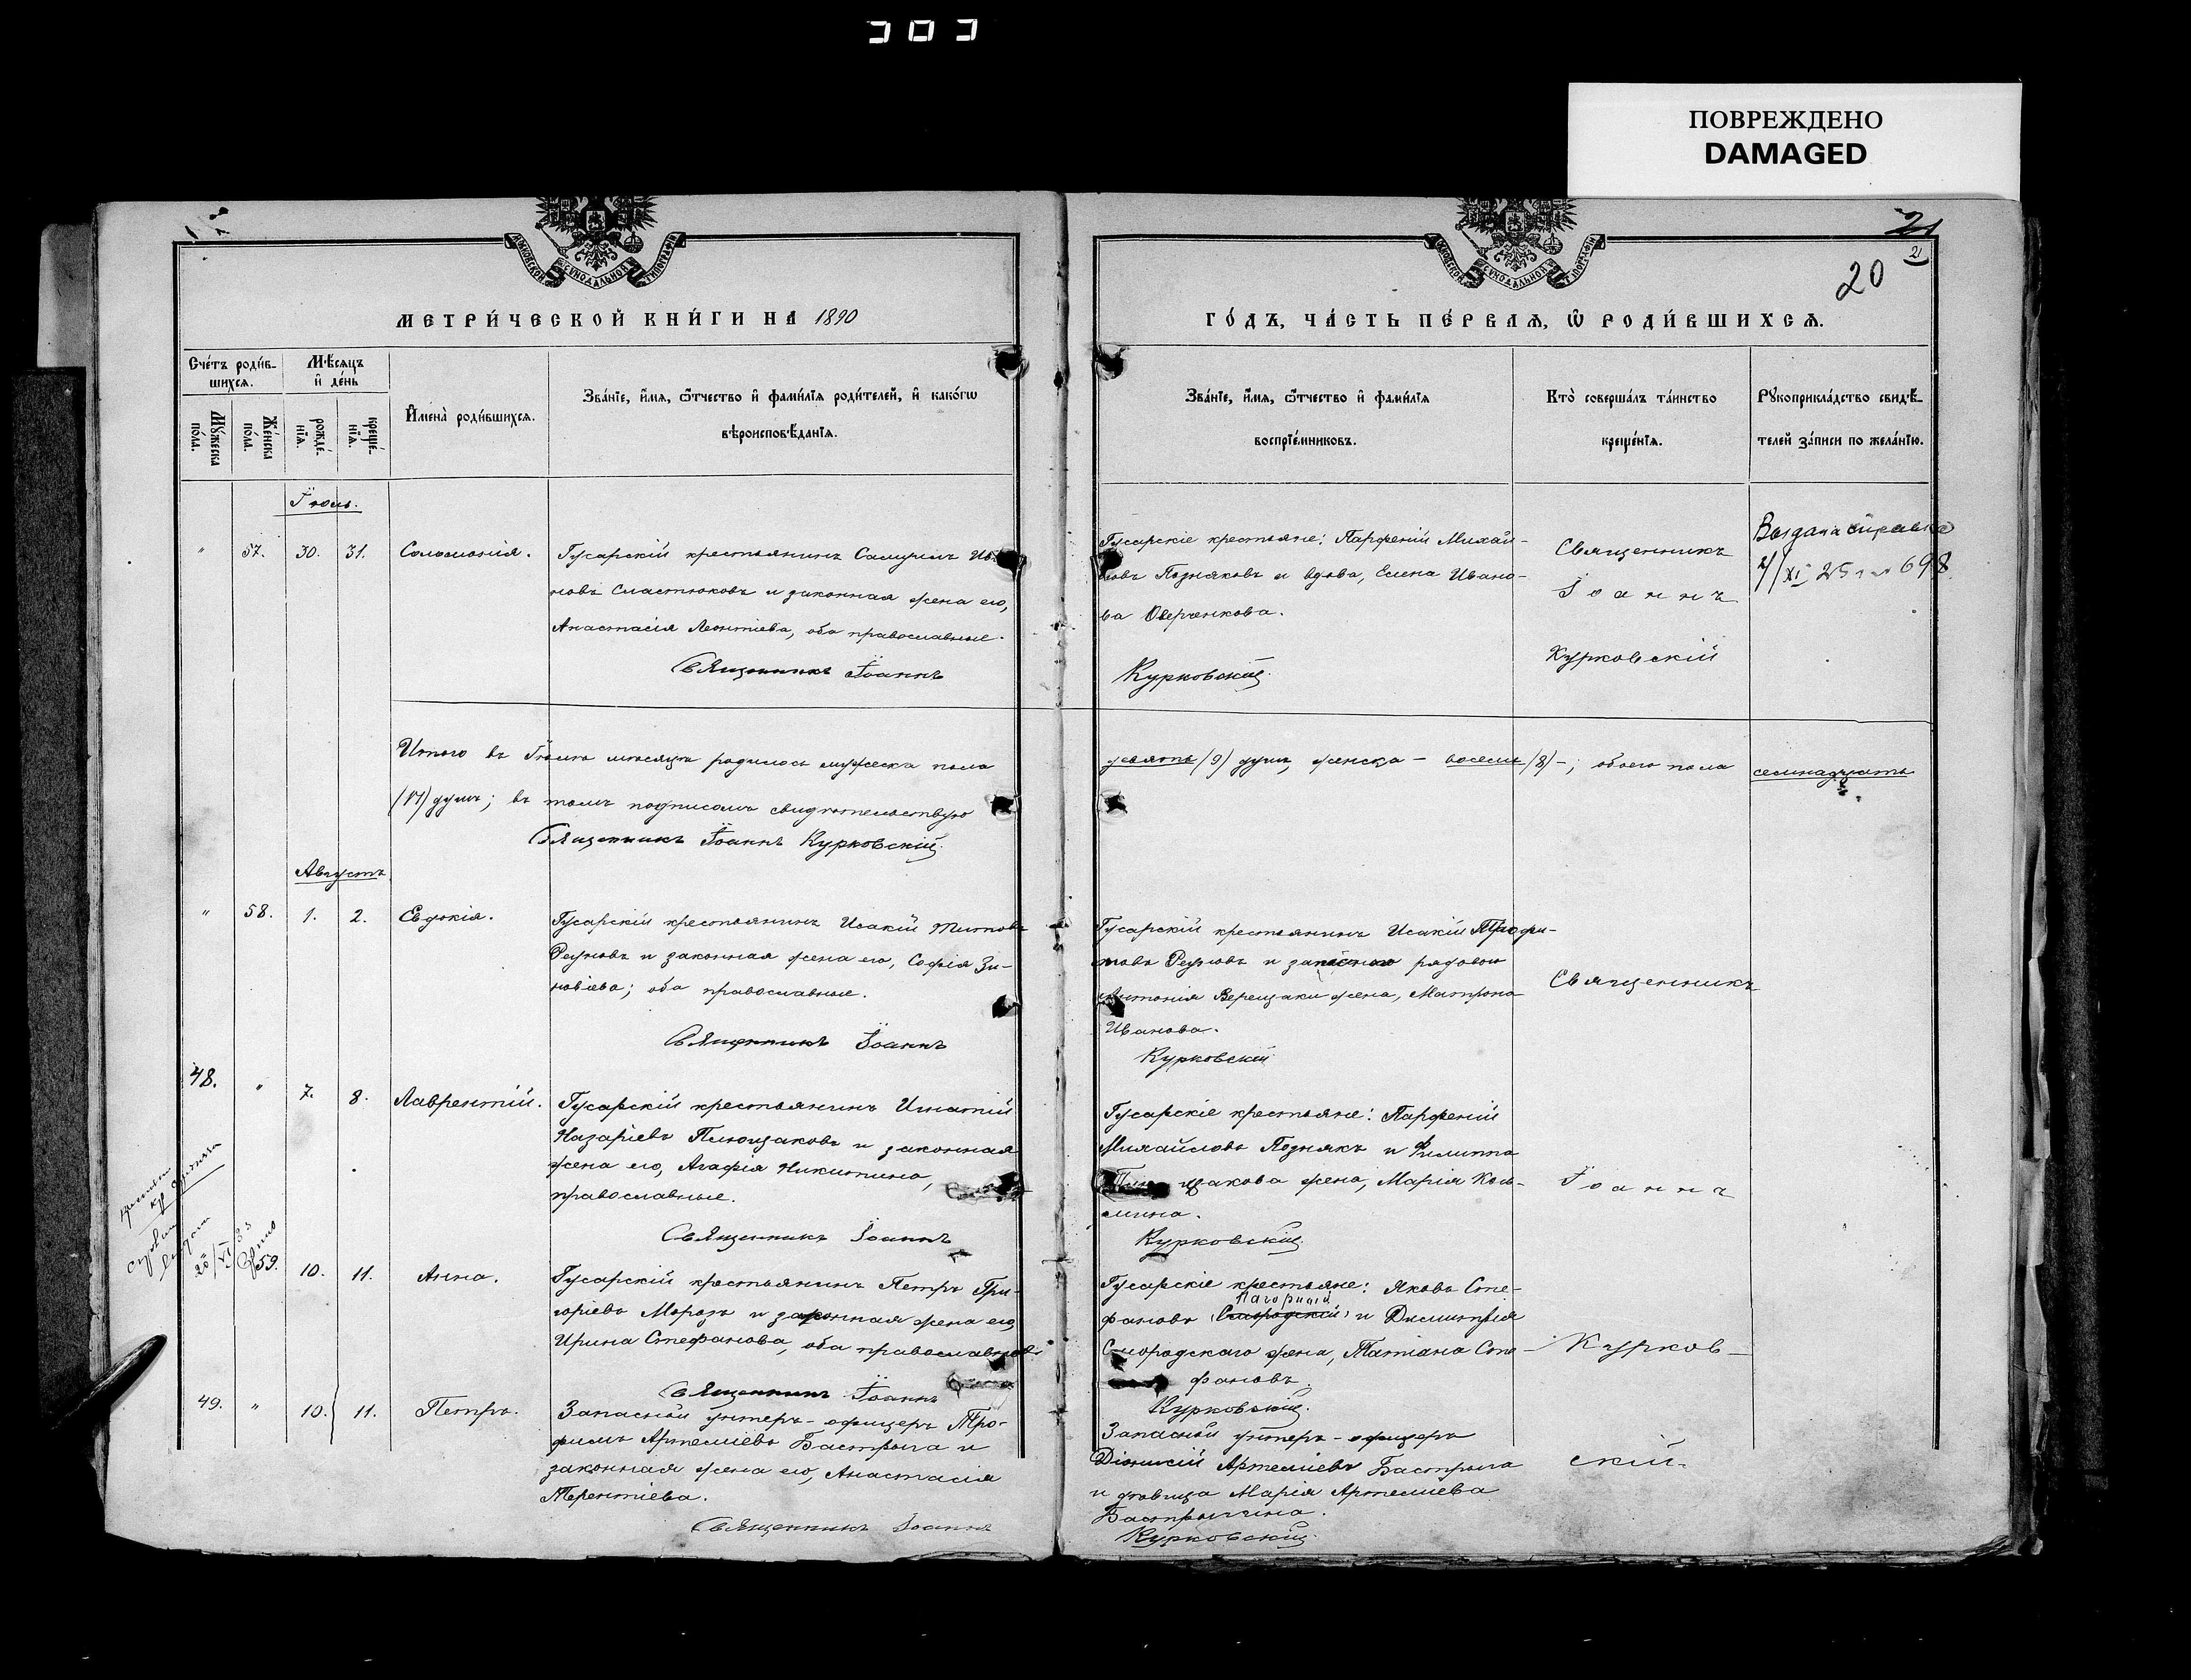 ПОВРЕЖДЕНО
DAMAGED
20
21
МЕТРИ́ЧЕСКОЙ КНИ́ГИ НА 1890
ГО́ДЪ, ЧА́СТЬ ПЕ́РВАѦ, Ѽ РОДИ́ВШИХСѦ.
Сче́тъ роди́в-
шихсѧ.
Мѣ́сѧцъ
и҆ де́нь
Мꙋ́жеска
по́ла.
Же́нска
по́ла.
рожде́-
нїѧ.
креще́-
нїѧ.
И҆мена̀ роди́вшихсѧ.
Зва́нїе, и҆́мѧ, ѻ҆́тчество и҆ фами́лїѧ роди́телей, и҆ како́гѡ
вѣроисповѣ́данїѧ.
Зва́нїе, и҆́мѧ, ѻ҆́тчество и҆ фами́лїѧ
воспрїе́мниковъ.
Кто̀ соверша́лъ та́инство
креще́нїѧ.
Рꙋкоприкла́дство свидѣ́-
телей за́писи по жела́нїю.
Іюль.
" 57. 30. 31. Соломонія.
Гусарскій крестьянинъ Самуилъ Ива-
новъ Сластюковъ и законная жена его,
Анастасія Леонтіева, оба православные.
Священникъ Іоаннъ
Гусарскіе крестьяне: Парфеній Михай-
ловъ Поздняковъ и вдова, Елена Ивано-
ва Оверченкова.
Курковскій.
Священникъ
Іоаннъ
Курковскій
Выдана справка
698
Итого въ Іюлѣ мѣсяцѣ родилось мужеска пола
девять (9) душъ, женска – восемь (8) –; обоего пола
семнадцать
(17) душъ; въ томъ подписомъ свидѣтельствую
Священникъ Іоаннъ Курковскій.
Августъ
" 58. 1. 2. Евдокія.
Гусарскій крестьянинъ Исакій Титовъ
Реуновъ и законная жена его, Софія Зи-
новіева; оба православные.
Священникъ Іоаннъ
Гусарскій крестьянинъ Исакій Трофи-
мовъ Реуновъ и запаснаго рядового
Антонія Верещаки жена, Матрона
Иванова.
Курковскій
Священникъ
48. " 7. 8. Лаврентій.
Гусарскій крестьянинъ Игнатій
Назаріевъ Плющаковъ и законная
жена его, Агафія Никитина,
православные.
Священникъ Іоаннъ
Гусарскіе крестьяне: Парфеній
Михайловъ Познякъ и Филиппа
щакова жена, Марія Козь-
мина.
Курковскій.
Іоаннъ
59. 10. 11. Анна.
Гусарскій крестьянинъ Петръ Гри-
горіевъ Морозъ и законная жена его,
Ирина Стефанова, оба православные
Священникъ Іоаннъ
Гусарскіе крестьяне: Яковъ Сте-
Нагорный
фановъ и Димитрія
Смородскаго жена, Татіана Сте-
фановъ.
Курковскій.
Курков-
49. " 10. 11. Петръ.
Запасной унтеръ-офицеръ Тро-
фимъ Артеміевъ Бастрыга и
законная жена его, Анастасія
Терентіева.
Священникъ Іоаннъ
Запасной унтеръ-офицеръ
Діонисій Артеміевъ Бастрыга
и дѣвица Марія Артеміева
Бастрыгина.
Курковскій.
скій.